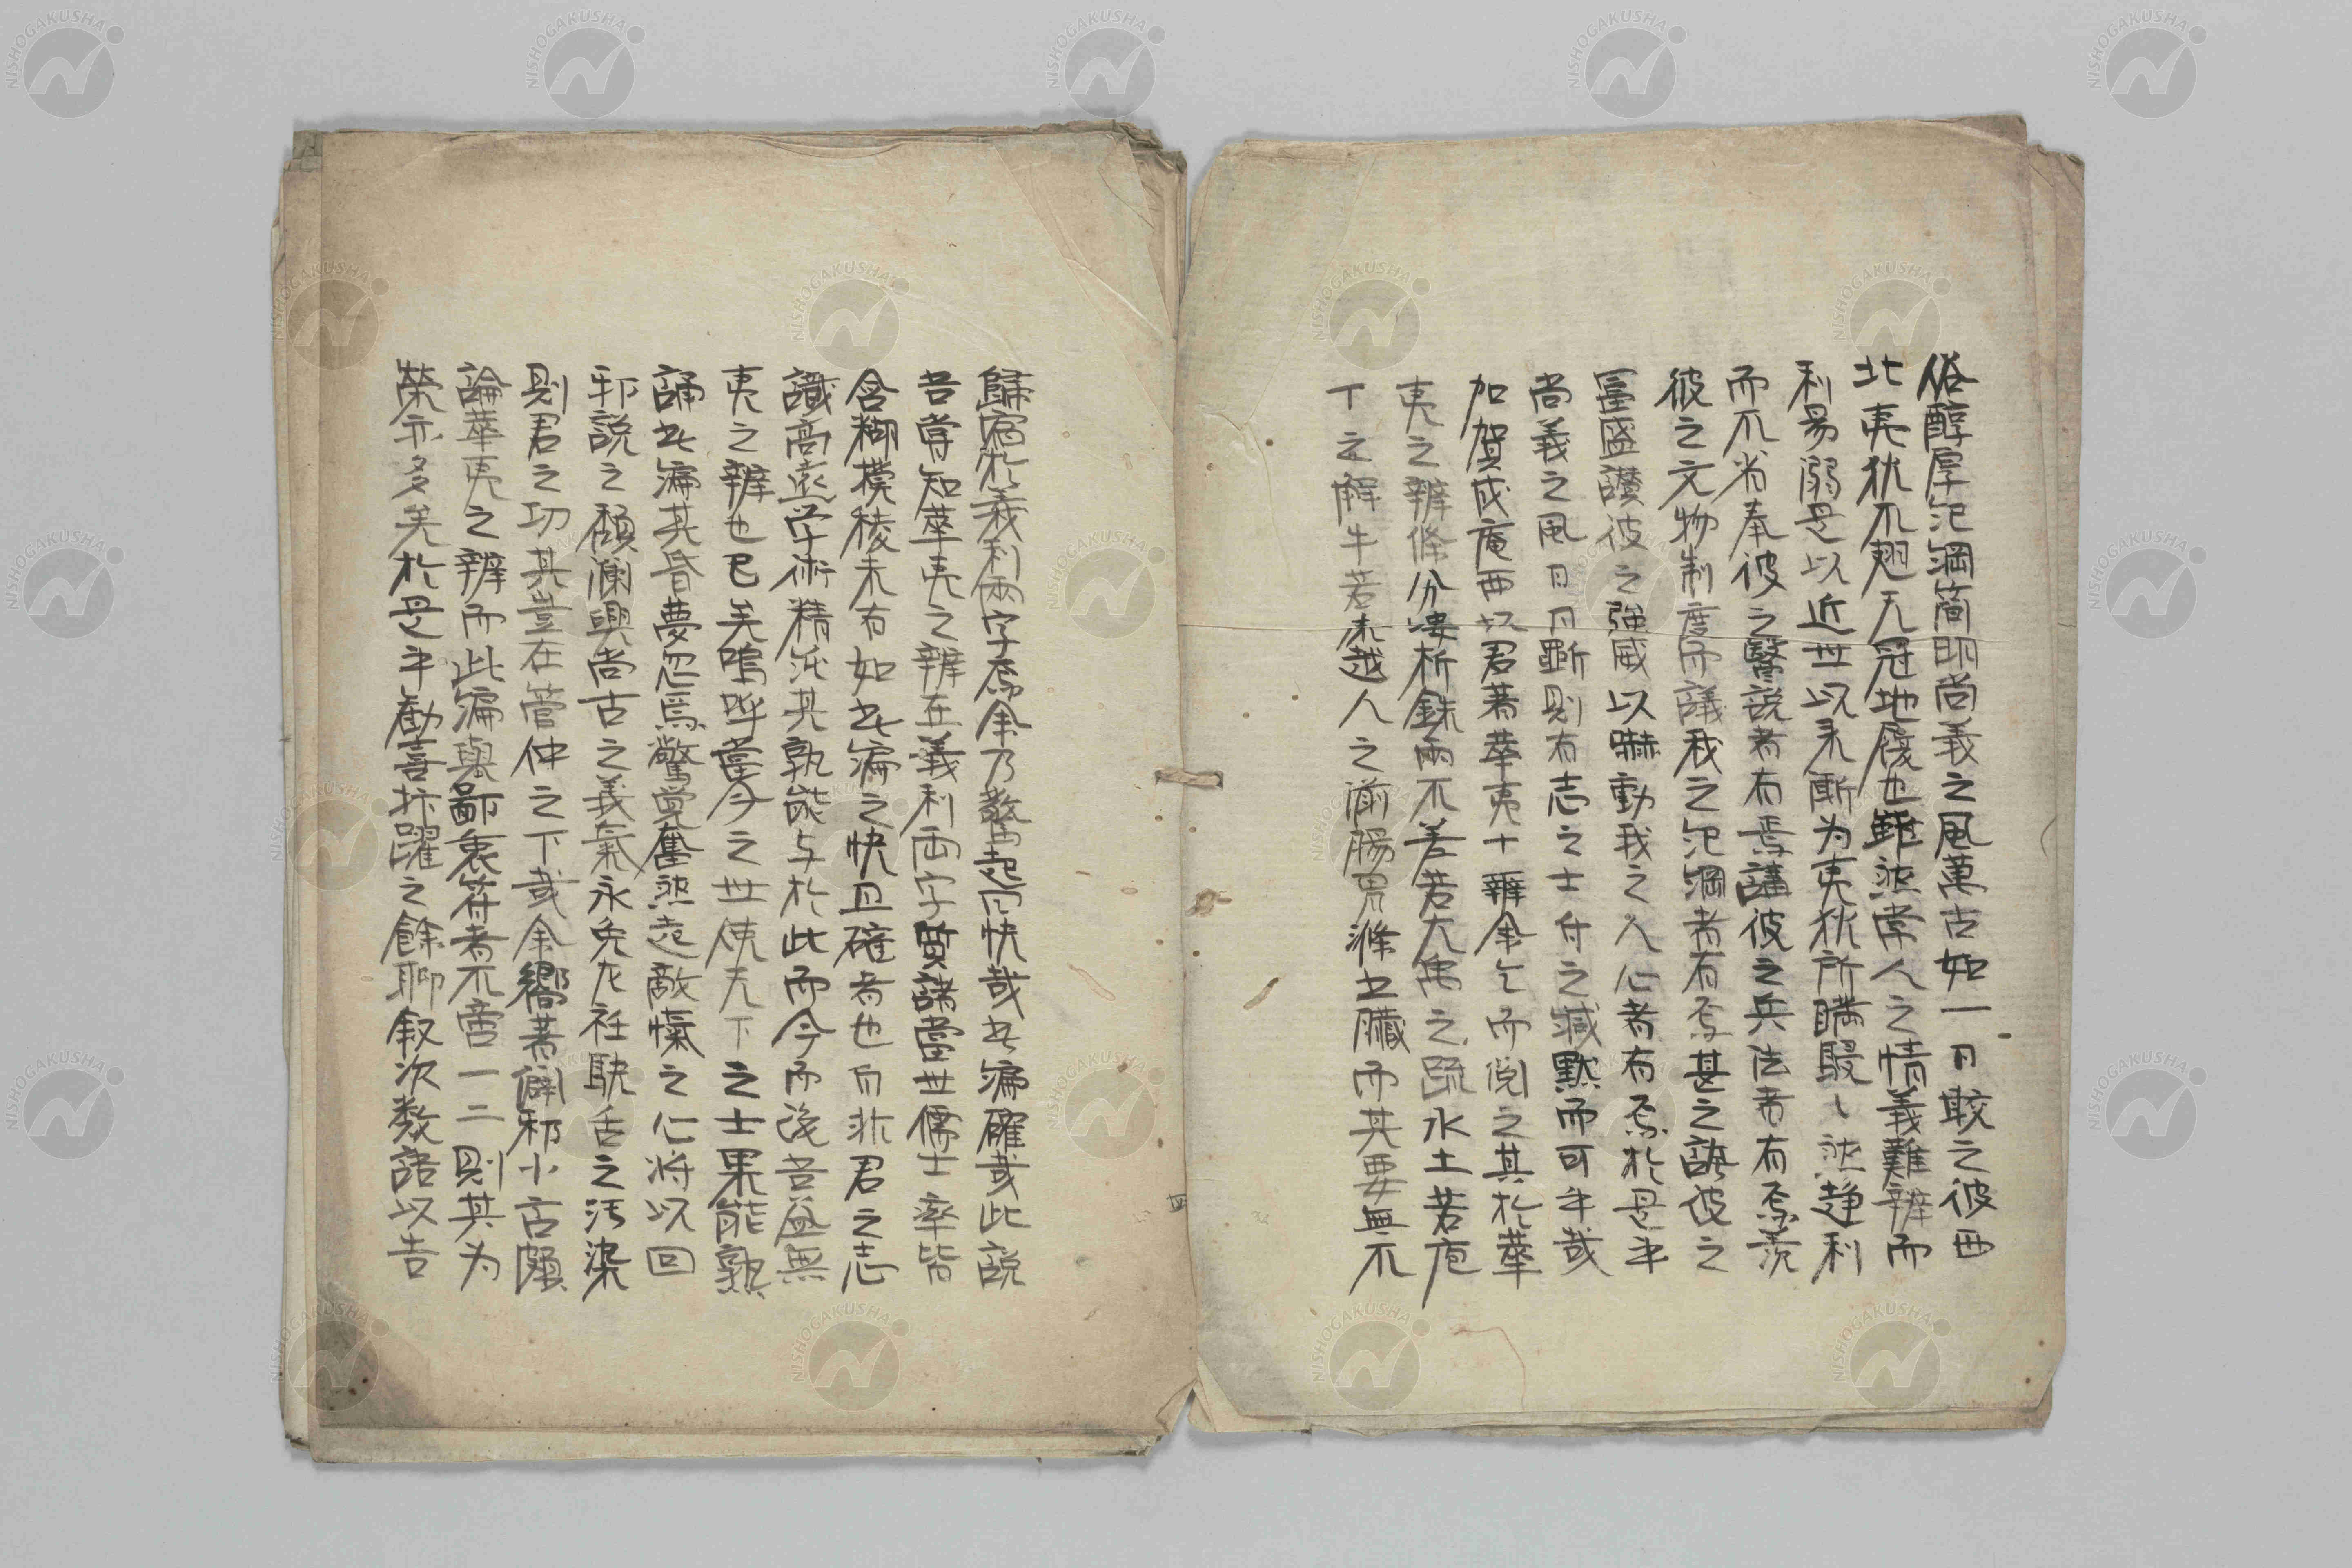 俗醇厚紀綱簡明尚義之風萬古如一日較之彼西
北夷狄不翅天冠地履也雖然常人之情義難辨而
利易溺是以近世以来漸为夷狄所瞞騙々然趋利
而不省奉彼之醫説者有焉講彼之兵法者有焉羨
彼之文物制度而議我之紀綱者有焉甚之誇彼之
富盛讃彼之強威以嚇動我之人心者有焉於是乎
尚義之風日月斲則有志之士付之緘黙而可乎哉
加賀或庵西坂君著華夷十辨余乞而閲之其於華
夷之辨條分婁析銖兩不差若大禹之疏水土若庖
丁之解牛若秦越人之湔腸胃滌五臓而其要無不
歸宿於義利兩字焉余乃驚起曰快哉此編確哉此説
吾嘗知華夷之辨在義利両字質諸當世儒士率皆
含糊摸稜未有如此編之快且確者也自非君之志
識高遠学術精純其孰能与於此而今而後吾益無
夷之辨也已矣嗚呼當今之世使天下之士果能熟
誦此編其昏夢忽焉驚覚奮然起敵愾之心将以回
邪説之頽瀾興尚古之義氣永免左衽駃舌之汚染
則君之功其豈在管仲之下哉余嚮著闢邪小言頗
論華夷之辨而此編與鄙衷符者不啻一二則其为
榮亦多矣於是乎勸喜抃躍之餘聊叙次数語以告